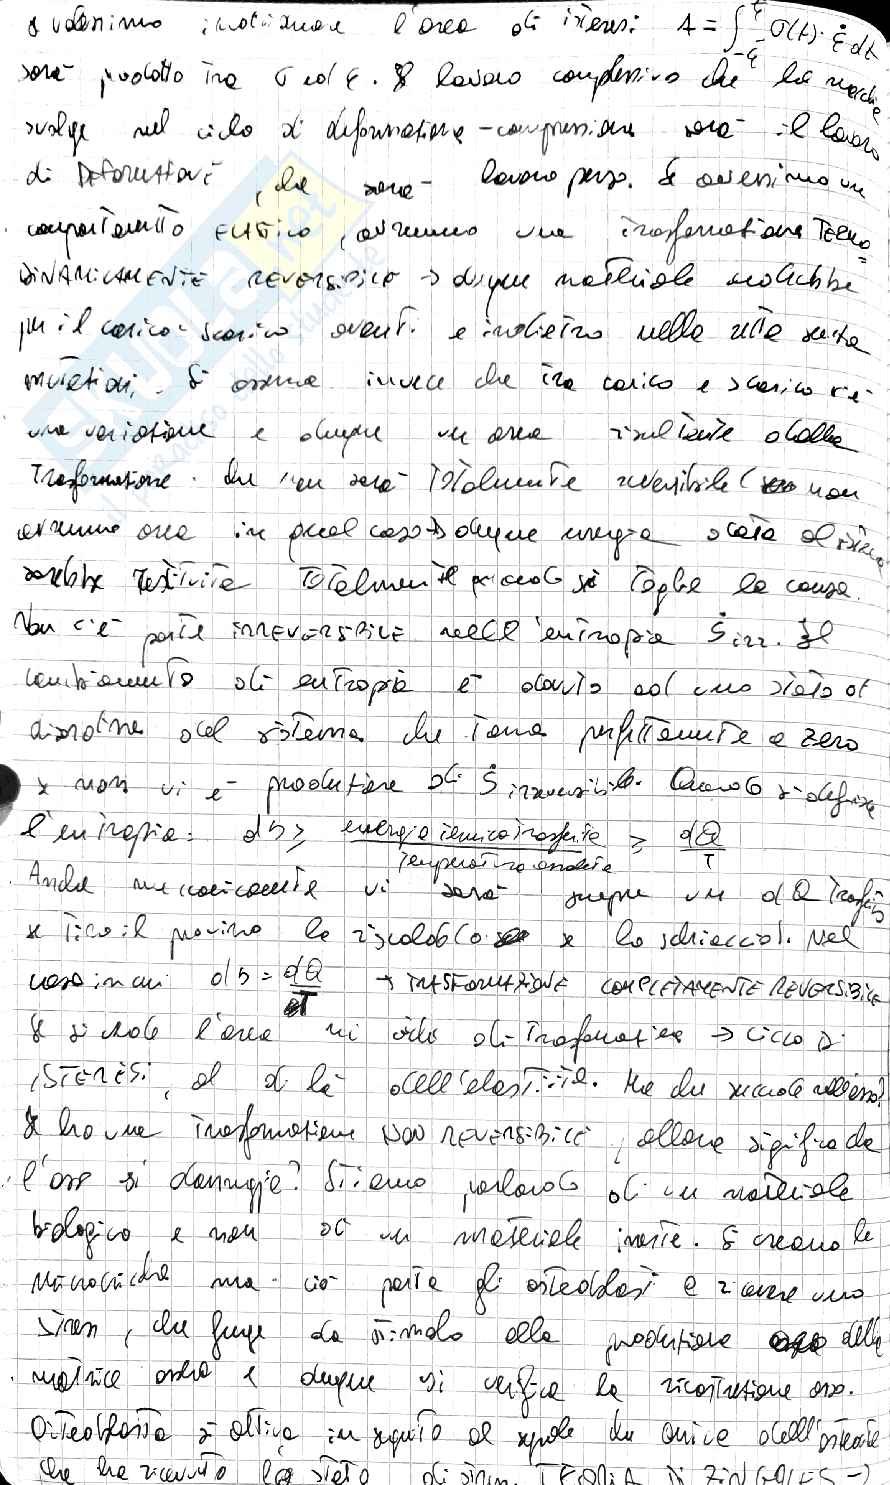 Se volessimo individuare l'area di isteresi A = ∫ σ(t)·ε̇ dt
sarà prodotto tra σ ed ε. Il lavoro complessivo che la macchina
svolge nel ciclo di deformazione-compressione sarà il lavoro
di DEFORMAZIONE, che sarà lavoro perso. Se avessimo un
comportamento ELASTICO, avremmo una trasformazione TERMO=
DINAMICAMENTE REVERSIBILE → dunque materiale andrebbe
per il carico-scarico avanti e indietro nella retta senza
mutazioni. Si osserva invece che tra carico e scarico c'è
una variazione e dunque un'area risultante dalla
trasformazione che non sarà totalmente reversibile ( non
avremmo area in quel caso → dunque energia data al sistema
sarebbe restituita totalmente quando si toglie la causa.
Non c'è parte IRREVERSIBILE nell'entropia Ṡirr. Il
cambiamento di entropia è dovuto ad uno stato di
disordine del sistema che torna perfettamente a zero
se non vi è produzione di Ṡ irreversibile. Quando si definisce
l'entropia: dS ≥ energia termica trasferita / Temperatura assoluta ≥ dQ / T
Anche meccanicamente vi sarà sempre un dQ trasferito
se tiro il provino lo riscaldo o se lo schiaccio. Nel
caso in cui dS = dQ / T → TRASFORMAZIONE COMPLETAMENTE REVERSIBILE
Se si vede l'area vi ciclo di trasformazione → CICLO DI
ISTERESI, al di là dell'elasticità. Ma che succede nell'osso?
Se ho una trasformazione NON REVERSIBILE, allora significa che
l'osso si danneggia? Stiamo parlando di un materiale
biologico e non di un materiale inerte. Si creano le
microcricche ma ciò porta gli osteoblasti a ricevere uno
stress, che funge da stimolo alla produzione della
matrice ossea e dunque si verifica la ricostruzione ossea.
Osteoblasto si attiva in seguito al segnale che arriva dall'osteocita
che ha ricevuto lo stato di stress. TEORIA DI ZINGALES →